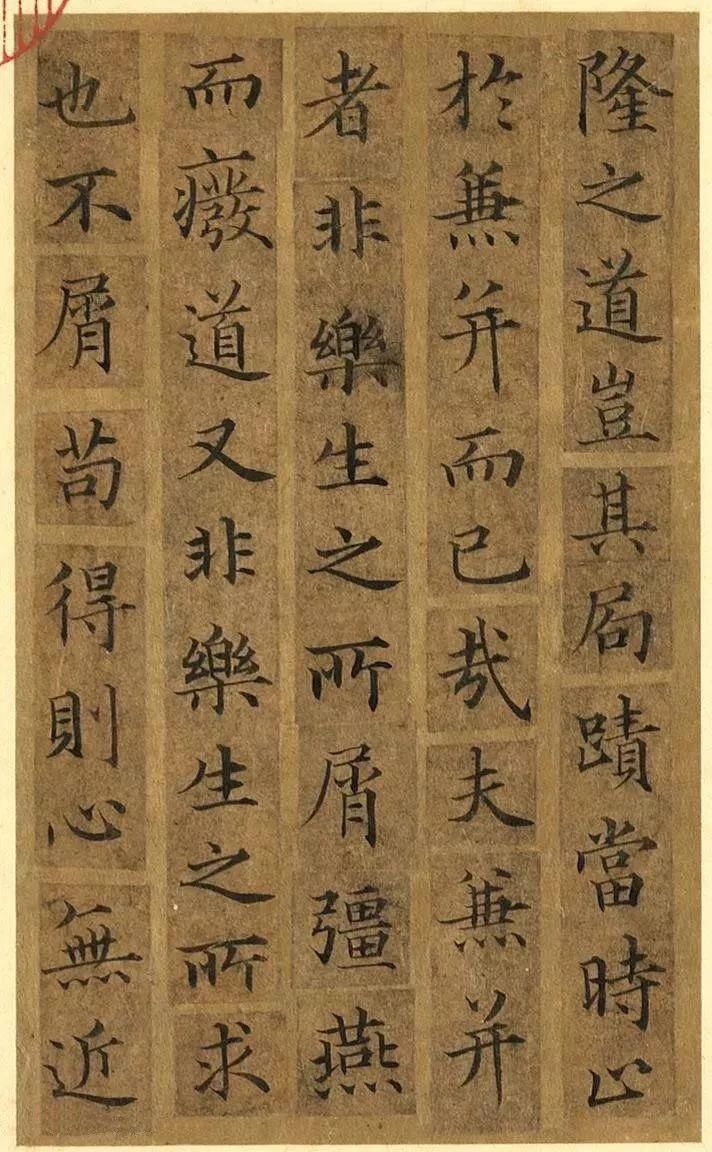 隆之道豈其局蹟當時止
於兼并而已哉夫兼并
者非樂生之所屑彊燕
而癈道又非樂生之所求
也不屑苟得則心無近